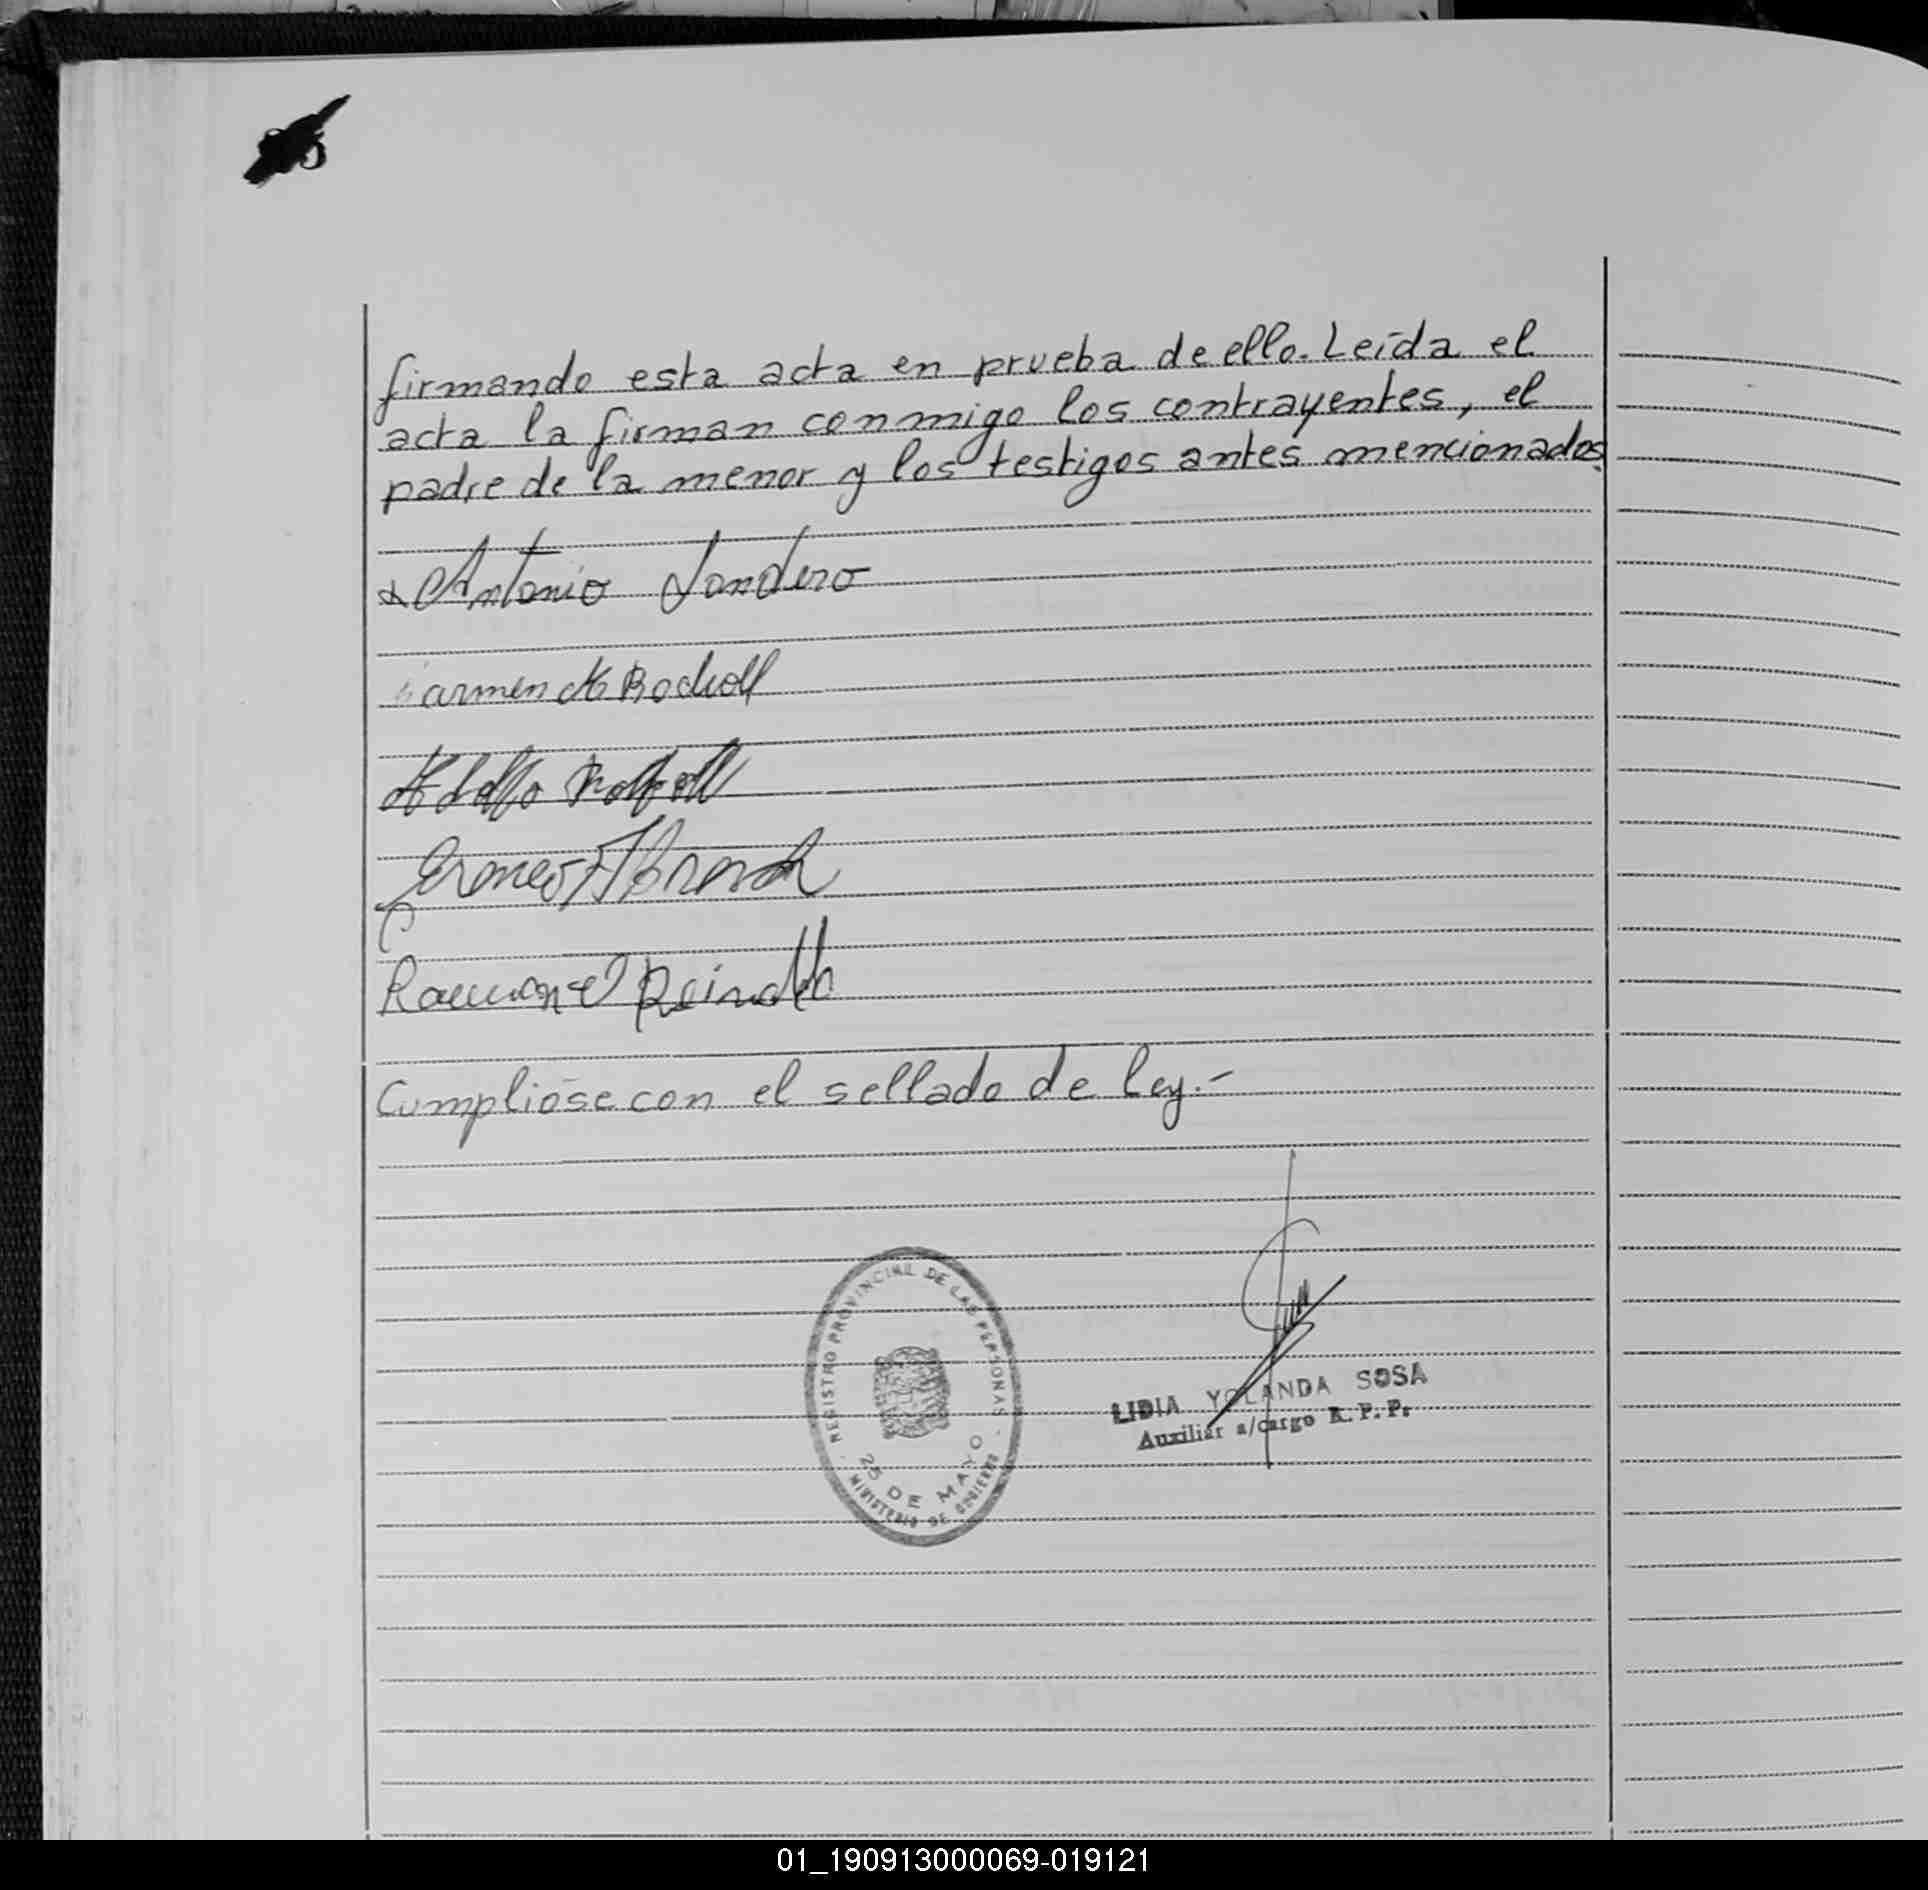 firmando esta acta en prueba de ello. Leída el
acta la firman conmigo los contrayentes, el
padre de la menor y los testigos antes mencionados.
Antonio
Carmen M Rockoll
Ramon
Cumplióse con el sellado de ley.-
REGISTRO PROVINCIAL DE LAS PERSONAS
25 DE MAYO
MINISTERIO DE GOBIERNO
LIDIA YOLANDA SOSA
Auxiliar a/cargo R. P. P.
01_190913000069-019121